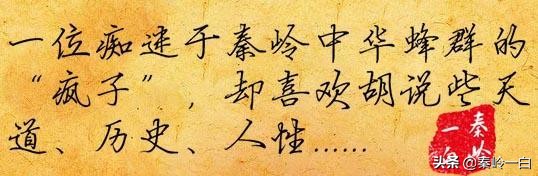 一位痴迷于秦岭中华蜂群的
“疯子”，却喜欢胡说些天
道、历史、人性......
秦岭
一白
头条 @秦岭一白